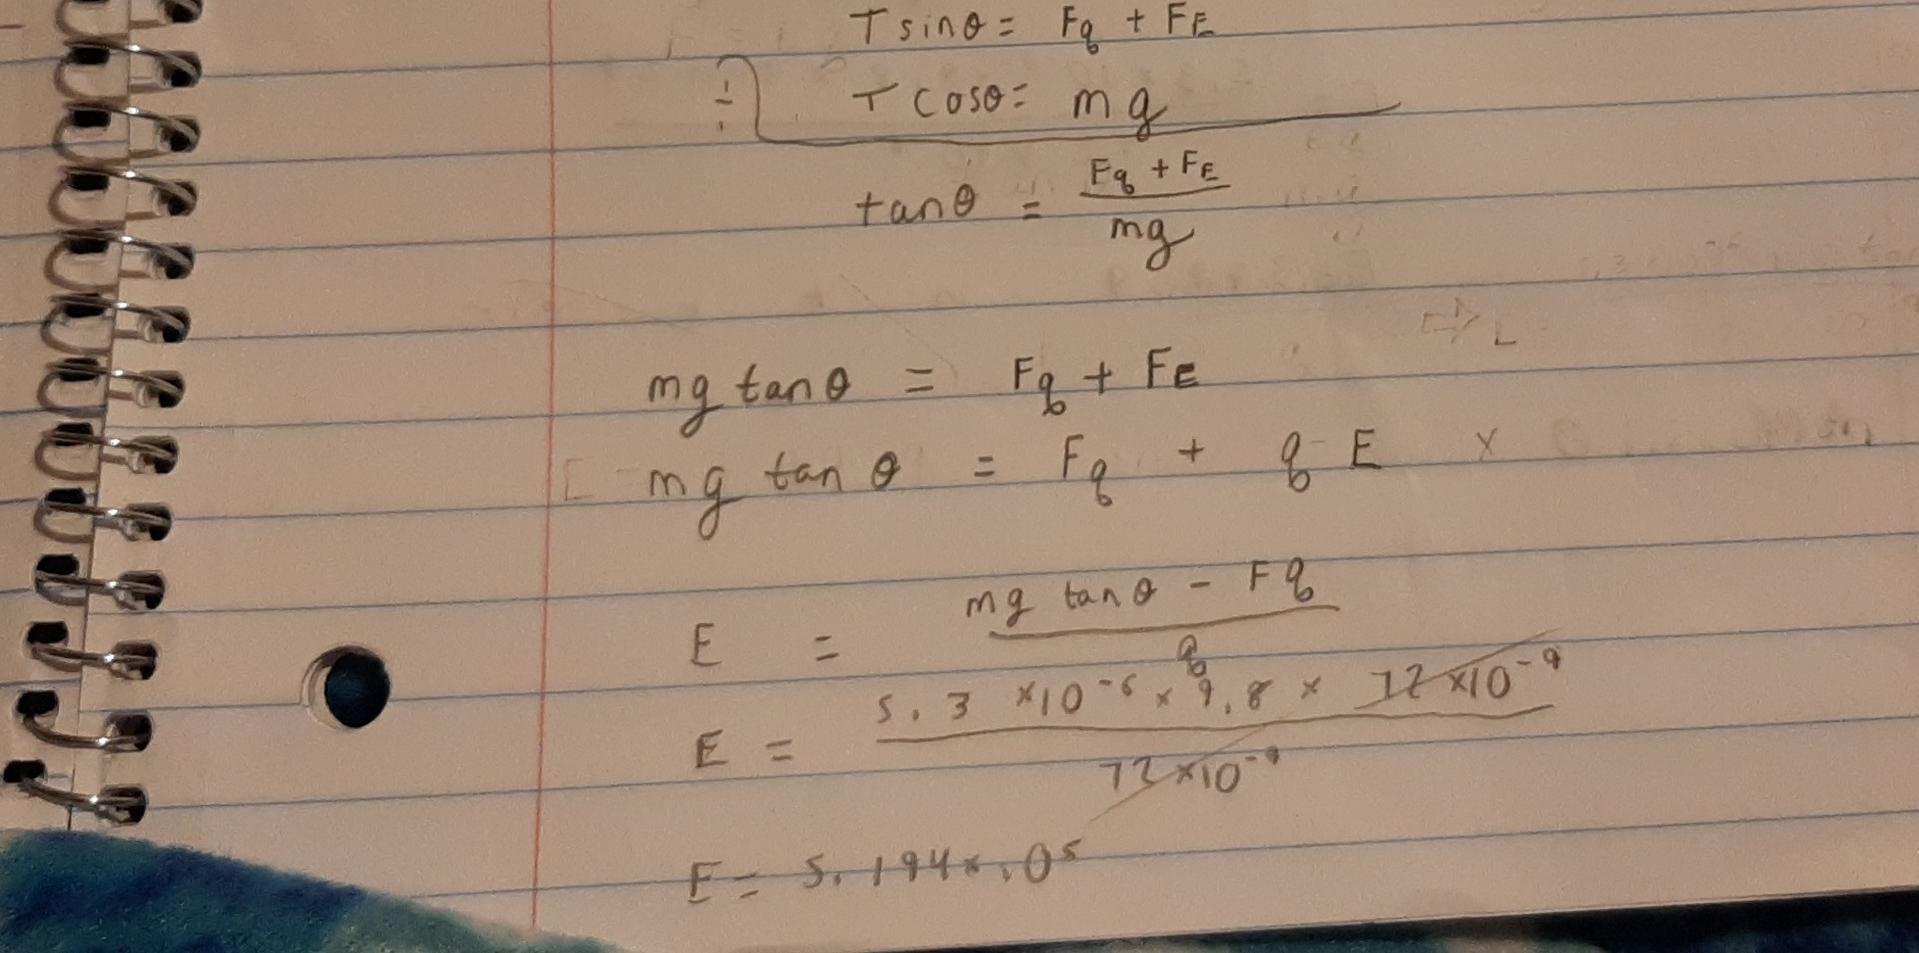 T sinθ = Fq + FE
÷ T cosθ = mg
tanθ = Fq + FE / mg
mg tanθ = Fq + FE
mg tan θ = Fq + q E x
E = mg tan θ - Fq / q
E = 5.3 x10⁻⁶ x 9.8 x 72 x10⁻⁹ / 72 x10⁻⁹
E = 5.194x.0⁵